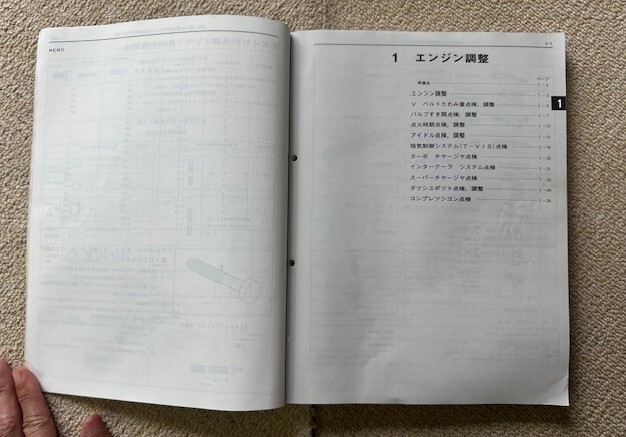 MEMO
1-1
1 エンジン調整
ページ
準備品 1-2
エンジン調整
V ベルトたわみ量点検，調整
バルブすき間点検，調整 1-7
点火時期点検，調整
アイドル点検，調整
吸気制御システム(T-VIS)点検
ターボ チャージャ点検
インタークーラ システム点検
スーパーチャージャ点検
ダッシュポット点検，調整 1-24
コンプレッション点検
1